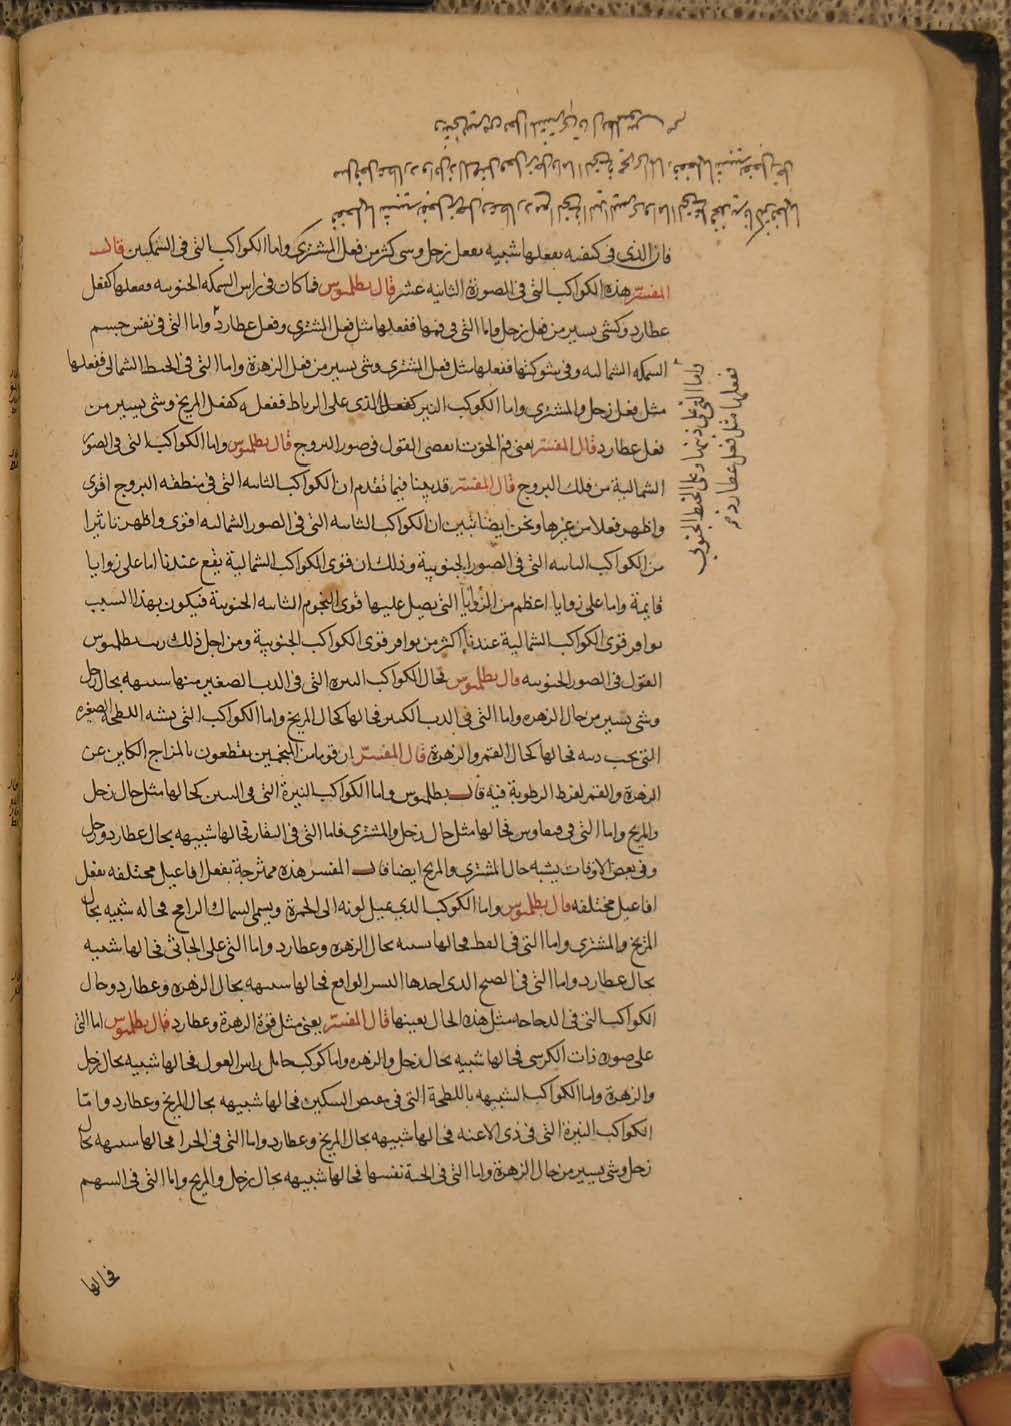 فان الذى فى كتفيه يفعلها شبيه بفعل زحل وشى كثير من فعل المشترى واما الكواكب التى فى السمكتين قال
المفسر هذه الكواكب التى فى الصورة الثانيه عشر قال بطلميوس فما كان فى راس السمكه الجنوبيه ففعلها كفعل
عطارد وكشى يسير من فعل زحل واما التى فى فمها ففعلها مثل فعل المشترى وفعل عطارد واما التى فى نفس جسم
السمكه الشماليه وفى شوكتها ففعلها مثل فعل المشترى وشى يسير من فعل الزهرة واما التى فى الخيط الشمالى ففعلها
مثل فعل زحل والمشترى واما الكوكب النير كفعل الذى على الرباط ففعله كفعل المريخ وشى يسير من
فعل عطارد قال المفسر يعنى فم الحوت انقضى القول فى صور البروج قال بطلميوس واما الكواكب التى فى الصور
الشمالية من فلك البروج قال المفسر قد بينا فيما تقدم ان الكواكب الثابته التى فى منطقه البروج اقوى
واظهر فعلا من غيرها ونحن ايضا نبين ان الكواكب الثابته التى فى الصور الشماليه اقوى واظهر تاثيرا
من الكواكب الثابته التى فى الصور الجنوبية وذلك ان قوى الكواكب الشمالية يقع عندنا اما على زوايا
قايمة واما على زوايا اعظم من الزوايا التى يصل عليها قوى النجوم الثابته الجنوبية فيكون بهذا السبب
توافر قوى الكواكب الشمالية عندنا اكثر من توافر قوى الكواكب الجنوبية ومن اجل ذلك رتب بطلميوس
القول فى الصور الجنوبيه قال بطلميوس فحال الكواكب النيره التى فى الدب الصغير منها شبيهه بحال زحل
وشى يسير من حال الزهره واما التى فى الدب الكبير فحالها كحال المريخ واما الكواكب التى يشبه اللطخه الصغيره
التى تحت ذنبه فحالها كحال القمر والزهرة قال المفسر ان قوما من المنجمين يقطعون بالمزاج الكاين عن
الزهرة والقمر لفرط الرطوبة فيه قال بطلميوس واما الكواكب النيرة التى فى التنين كحالها مثل حال زحل
والمريخ واما التى فى قيفاوس فحالها مثل حال زحل والمشترى فاما التى فى البقار فحالها شبيهه بحال عطارد وزحل
وفى بعض الاوقات يشبه حال المشترى والمريخ ايضا قال المفسر هذه ممتزجة بفعل افاعيل مختلفه بفعل
افاعيل مختلفه قال بطلميوس واما الكوكب الذى يميل لونه الى الحمرة ويسمى السماك الرامح فحاله شبيه بحال
المريخ والمشترى واما التى فى الفطه فحالها شبيه بحال الزهره وعطارد واما التى على الجاثى فحالها شبيه
بحال عطارد واما التى فى الصنج الذى احدها النسر الواقع فحالها شبيهه بحال الزهره وعطارد وحال
الكواكب التى فى الدجاجه مثل هذه الحال بعينها قال المفسر يعنى مثل قوة الزهرة وعطارد قال بطلميوس اما التى
على صوره ذات الكرسى فحالها شبيه بحال زحل والزهره واما كوكب حامل راس الغول فحالها شبيه بحال زحل
والزهرة واما الكواكب الشبيهه باللطخة التى فى مقبض السكين فحالها شبيهه بحال المريخ وعطارد واما
الكواكب النيرة التى فى ذى الاعنه فحالها شبيهه بحال المريخ وعطارد واما التى فى الحوا فحالها شبيهه بحال
زحل وشى يسير من حال الزهرة واما التى فى الحية نفسها فحالها شبيهه بحال زحل والمريخ واما التى فى السهم
واما التى فى ذنبها وعلى الخيط الجنوبى
ففعلها مثل فعل عطارد
فحالها